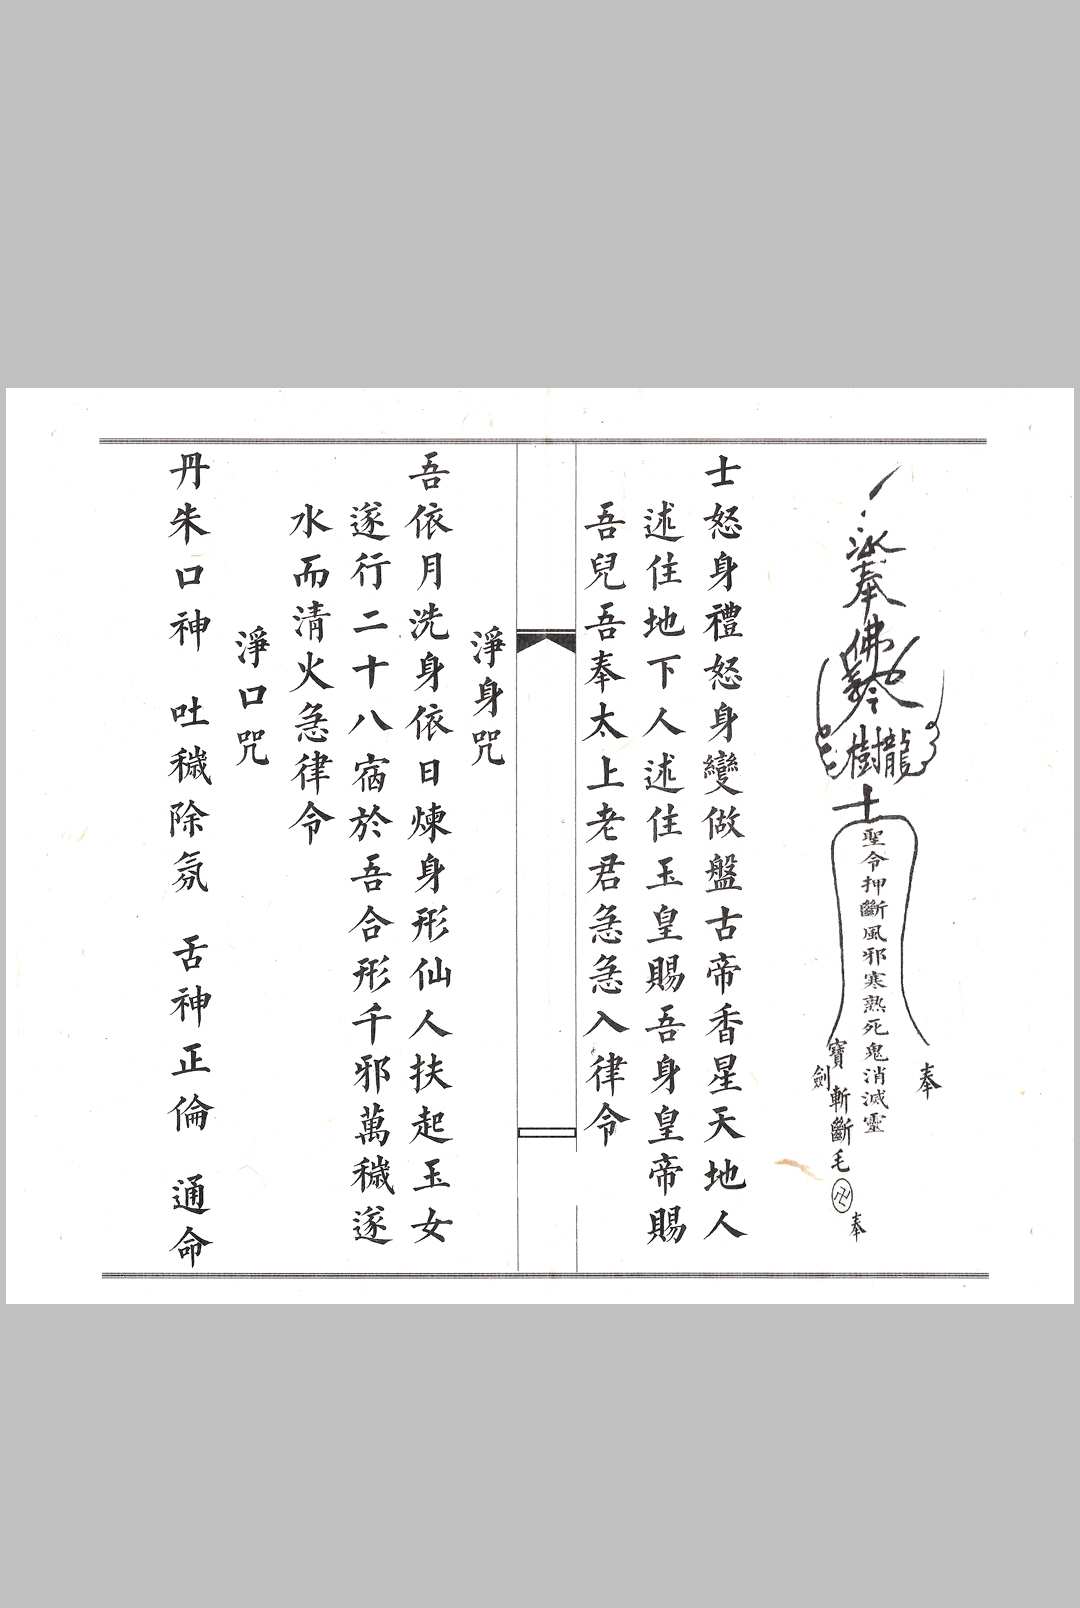 奉佛
龍樹
士
聖令押斷風邪寒熟死鬼消滅靈
奉
寶劍斬斷毛卍奉
士怒身禮怒身變做盤古帝香星天地人
述住地下人述住玉皇賜吾身皇帝賜
吾兒吾奉太上老君急急入律令
淨身咒
吾依月洗身依日煉身形仙人扶起玉女
遂行二十八宿於吾合形千邪萬穢遂
水而清火急律令
淨口咒
丹朱口神 吐穢除氛 舌神正倫 通命